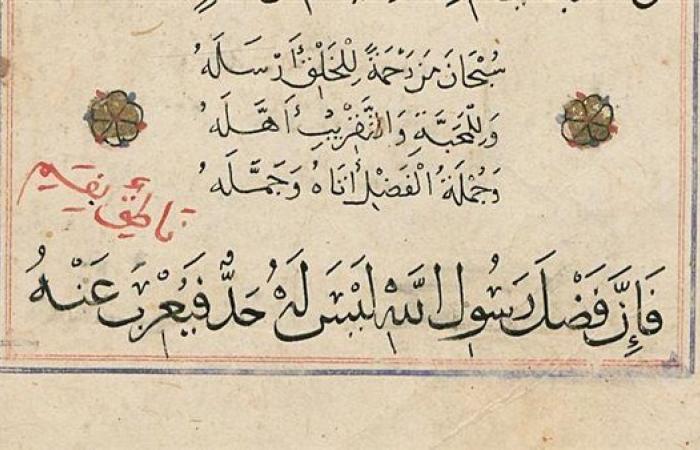 سُبْحَانَ مَنْ رَحْمَةً لِلْخَلْقِ أَرْسَلَهُ
وَلِلْمَحَبَّةِ وَالتَّقْرِيبِ أَهَّلَهُ
وَجُمْلَةُ الْفَضْلِ أتَاهُ وَجَمَّلَهُ
فَإِنَّ فَضْلَ رَسُولِ اللهِ لَيْسَ لَهُ حَدٌّ فَيُعْرِبَ عَنْهُ
نَاطِقٌ بِفَمِ